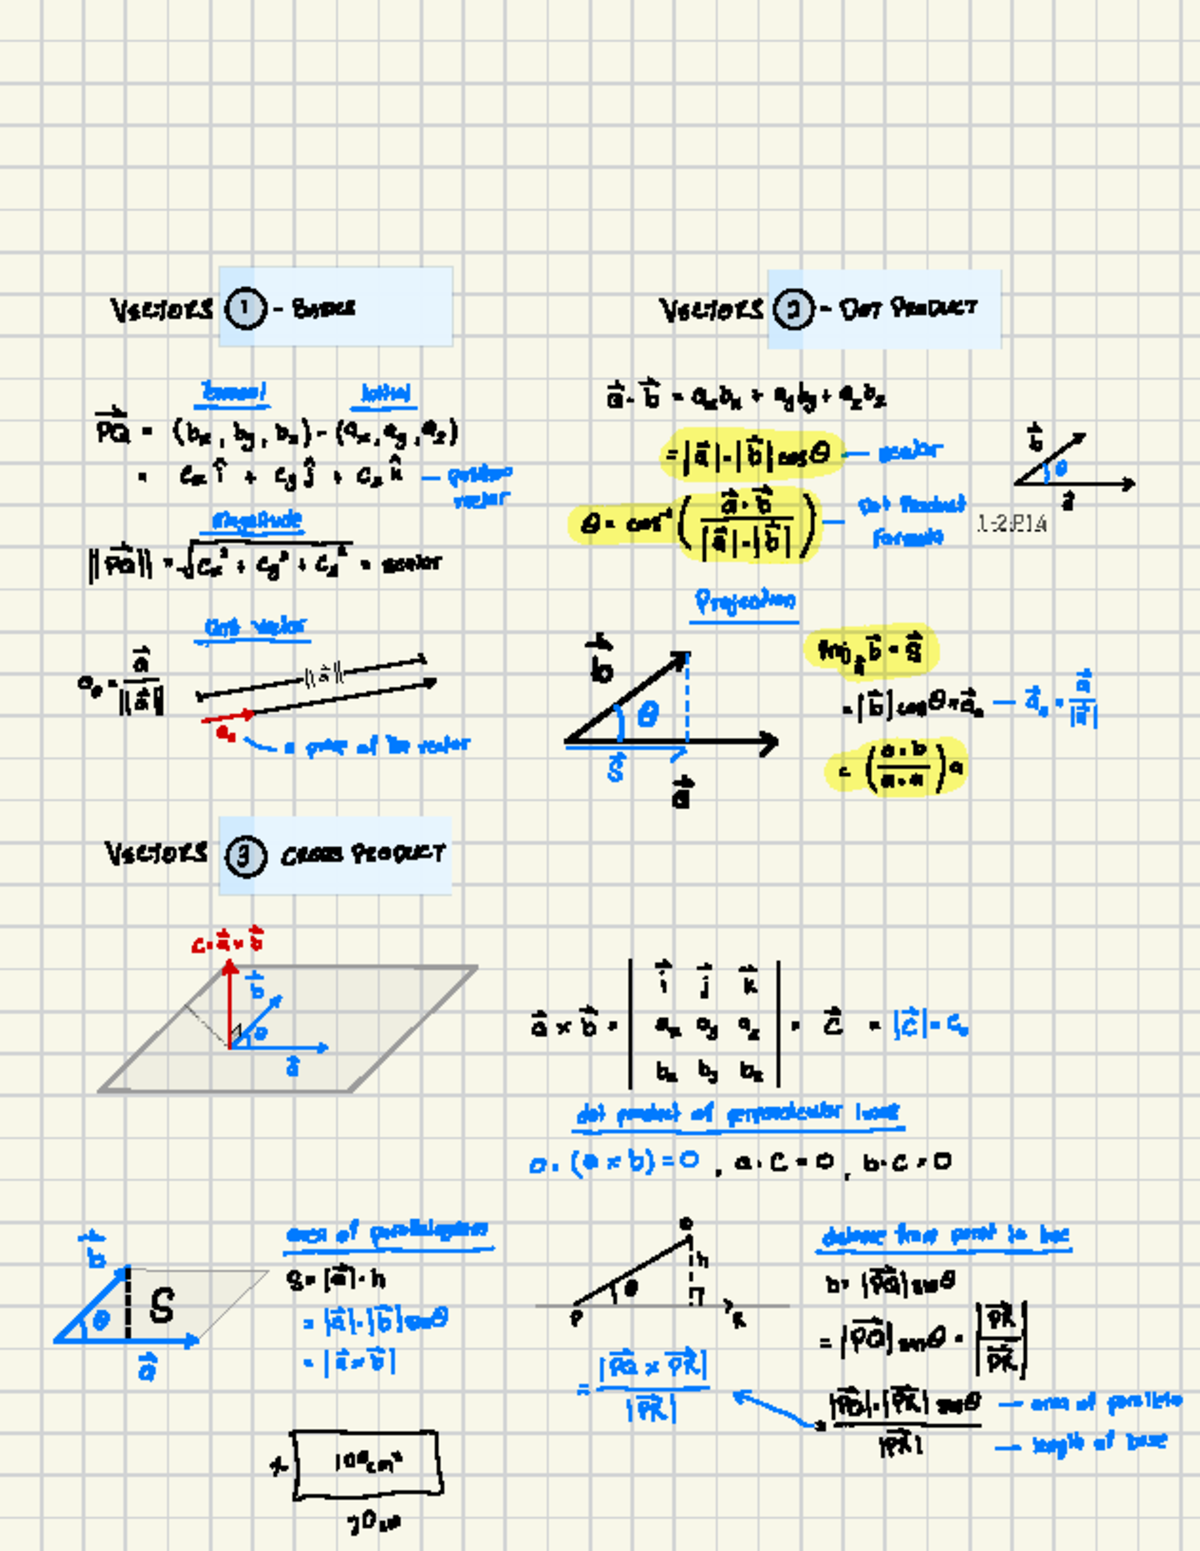 VECTORS ① - BASICS
Terminal Initial
PQ = (bx, by, bz) - (ax, ay, az)
= cx î + cy ĵ + cz k̂ — position vector
Magnitude
||PQ|| = √(cx² + cy² + cz²) = scalar
Unit vector
a₀ = a⃗ / ||a⃗||
||a⃗||
a₀
a part of the vector
VECTORS ② - DOT PRODUCT
a⃗ · b⃗ = axbx + ayby + azbz
= |a⃗| · |b⃗| cos θ — scalar
θ = cos⁻¹ (a⃗ · b⃗ / |a⃗| · |b⃗|) — Dot Product Formula
b⃗ θ a⃗
Projection
b⃗ θ S⃗ a⃗
Proj a⃗ b⃗ = S⃗
= |b⃗| cos θ × a⃗₀ — a⃗₀ = a⃗ / |a⃗|
= (a · b / a · a) a
VECTORS ③ CROSS PRODUCT
c = a⃗ × b⃗
b⃗ θ a⃗
a⃗ × b⃗ = | i⃗ j⃗ k⃗ | = c⃗ = |c⃗| = c₀
ax ay az
bx by bz
dot product of perpendicular lines
a · (a × b) = 0 , a · c = 0 , b · c = 0
area of parallelogram
b⃗ θ S a⃗
S = |a⃗| · h
= |a⃗| · |b⃗| sin θ
= |a⃗ × b⃗|
Q h P θ R
distance from point to line
h = |PQ| sin θ
= |PQ| sin θ · |PR| / |PR|
= |PQ| · |PR| sin θ / |PR|
— area of parallelo
— length of base
= |PQ × PR| / |PR|
x 100 cm²
20 cm